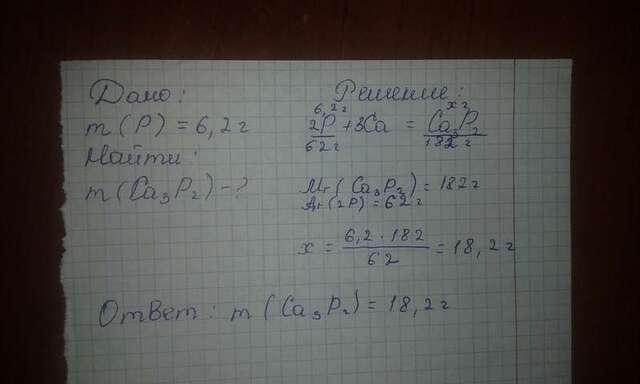 Дано:
m(P) = 6,2 г
Найти:
m(Ca₃P₂) - ?
Решение:
6,2 г x г
2P + 3Ca = Ca₃P₂
62 г 182 г
Mr(Ca₃P₂) = 182 г
Ar(2P) = 62 г
x = 6,2 · 182 / 62 = 18,2 г
Ответ: m(Ca₃P₂) = 18,2 г